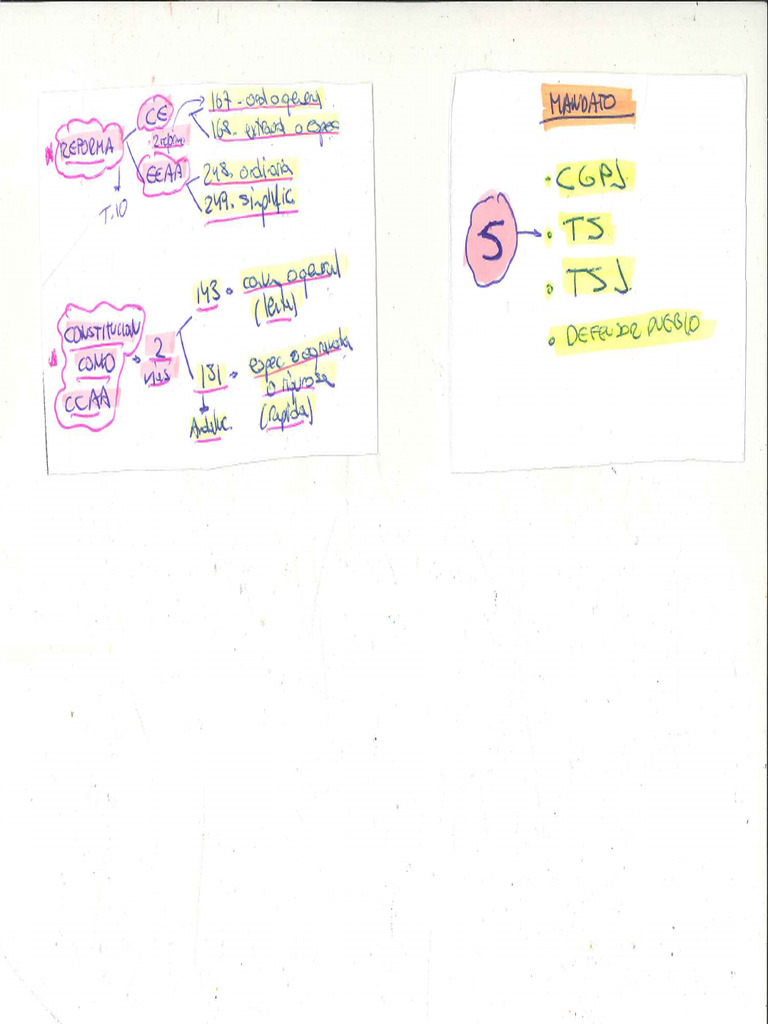 REFORMA
T.10
CE
167- ord o general
168- extraord o espec
EEAA
248. ordiaria
249. simplific.
CONSTITUCION
COMO
CCAA
2
vías
143 común o general
(lenta)
151 espec o agravada
o rigurosa
(rapida)
Andaluc.
MANDATO
5
CGPJ
TS
TSJ
DEFENSOR PUEBLO